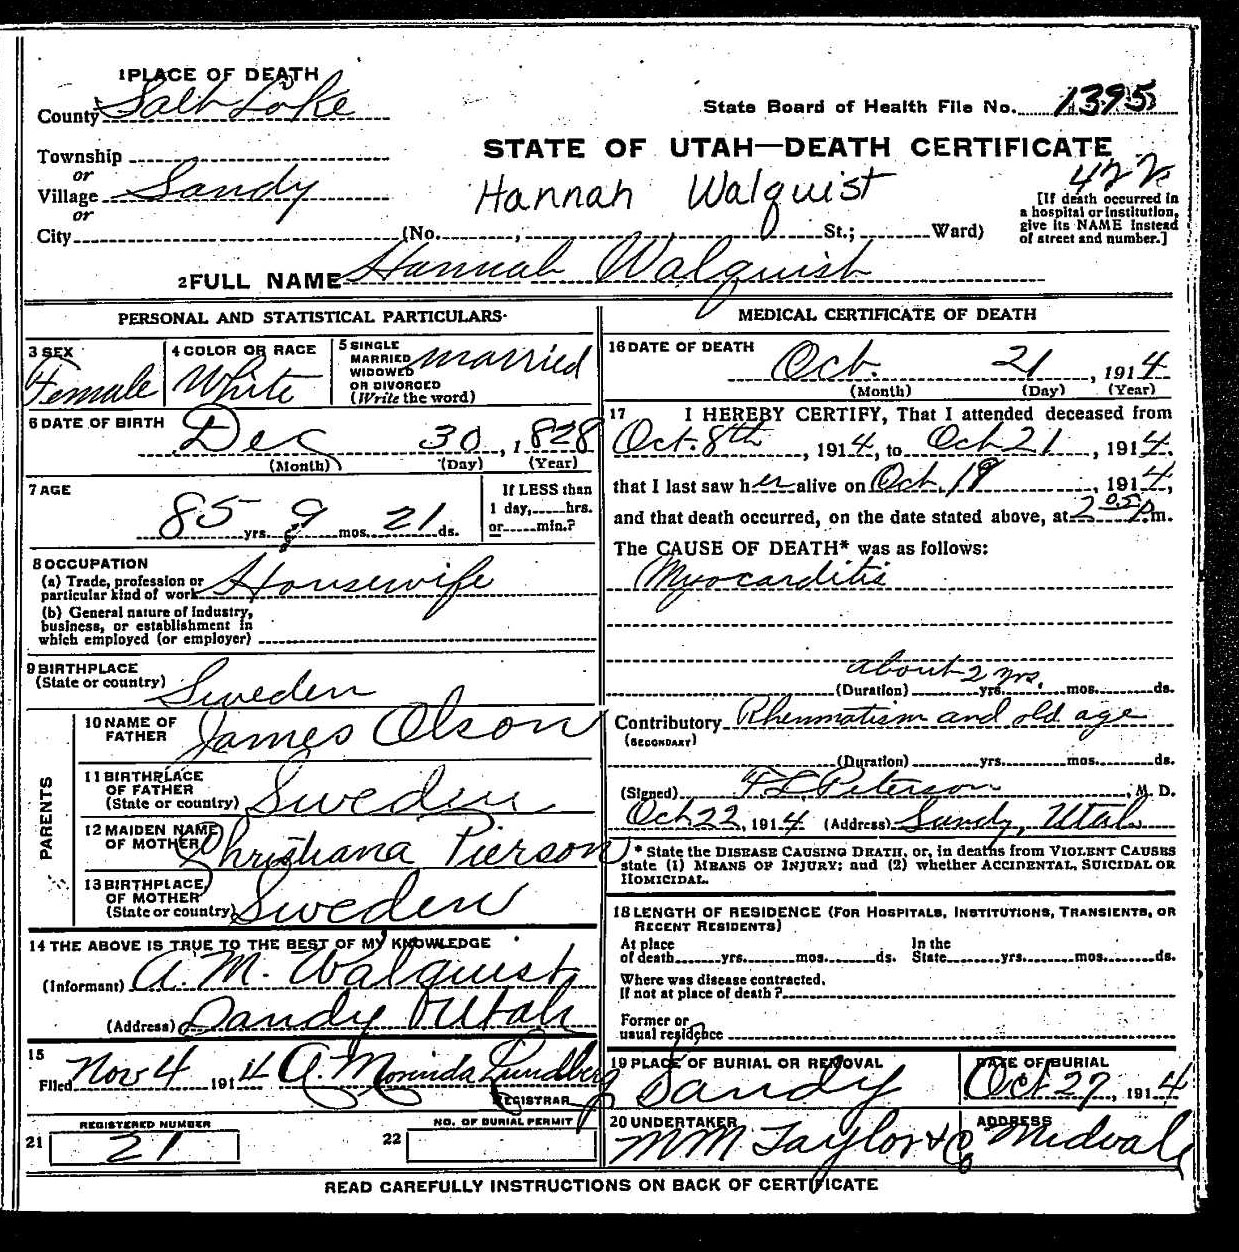 1 PLACE OF DEATH
County Salt Lake
State Board of Health File No. 1395
STATE OF UTAH—DEATH CERTIFICATE
Township
or
Village Sandy
or
Hannah Walquist
422
[If death occurred in
a hospital or institution,
give its NAME instead
of street and number.]
City (No. , St.; Ward)
2 FULL NAME Hannah Walquist
PERSONAL AND STATISTICAL PARTICULARS
3 SEX
Female
4 COLOR OR RACE
White
5 SINGLE
MARRIED
WIDOWED
OR DIVORCED
(Write the word)
married
6 DATE OF BIRTH
Dec 30, 1828
(Month) (Day) (Year)
7 AGE
85 yrs. 9 mos. 21 ds.
If LESS than
1 day, hrs.
or min.?
8 OCCUPATION
(a) Trade, profession or
particular kind of work Housewife
(b) General nature of industry,
business, or establishment in
which employed (or employer)
9 BIRTHPLACE
(State or country) Sweden
PARENTS
10 NAME OF
FATHER James Olson
11 BIRTHPLACE
OF FATHER
(State or country) Sweden
12 MAIDEN NAME
OF MOTHER Christiana Pierson
13 BIRTHPLACE
OF MOTHER
(State or country) Sweden
14 THE ABOVE IS TRUE TO THE BEST OF MY KNOWLEDGE
(Informant) A. M. Walquist
(Address) Sandy Utah
15
Filed Nov 4 1914 A Lundberg
REGISTRAR
REGISTERED NUMBER
21 21
NO. OF BURIAL PERMIT
22
MEDICAL CERTIFICATE OF DEATH
16 DATE OF DEATH
Oct. 21, 1914
(Month) (Day) (Year)
17 I HEREBY CERTIFY, That I attended deceased from
Oct. 8th, 1914, to Oct 21, 1914.
that I last saw her alive on Oct. 19, 1914,
and that death occurred, on the date stated above, at 2 05 P.m.
The CAUSE OF DEATH* was as follows:
Myocarditis
about 2 yrs.
(Duration) yrs. mos. ds.
Contributory Rheumatism and old age
(SECONDARY)
(Duration) yrs. mos. ds.
(Signed) F. L. Peterson, M. D.
Oct 22, 1914 (Address) Sandy, Utah
* State the DISEASE CAUSING DEATH, or, in deaths from VIOLENT CAUSES
state (1) MEANS OF INJURY; and (2) whether ACCIDENTAL, SUICIDAL OR
HOMICIDAL.
18 LENGTH OF RESIDENCE (FOR HOSPITALS, INSTITUTIONS, TRANSIENTS, OR
RECENT RESIDENTS)
At place
of death yrs. mos. ds.
In the
State yrs. mos. ds.
Where was disease contracted,
if not at place of death?
Former or
usual residence
19 PLACE OF BURIAL OR REMOVAL
Sandy
DATE OF BURIAL
Oct 27, 1914
20 UNDERTAKER
M M Taylor & Co
ADDRESS
Midvale
READ CAREFULLY INSTRUCTIONS ON BACK OF CERTIFICATE